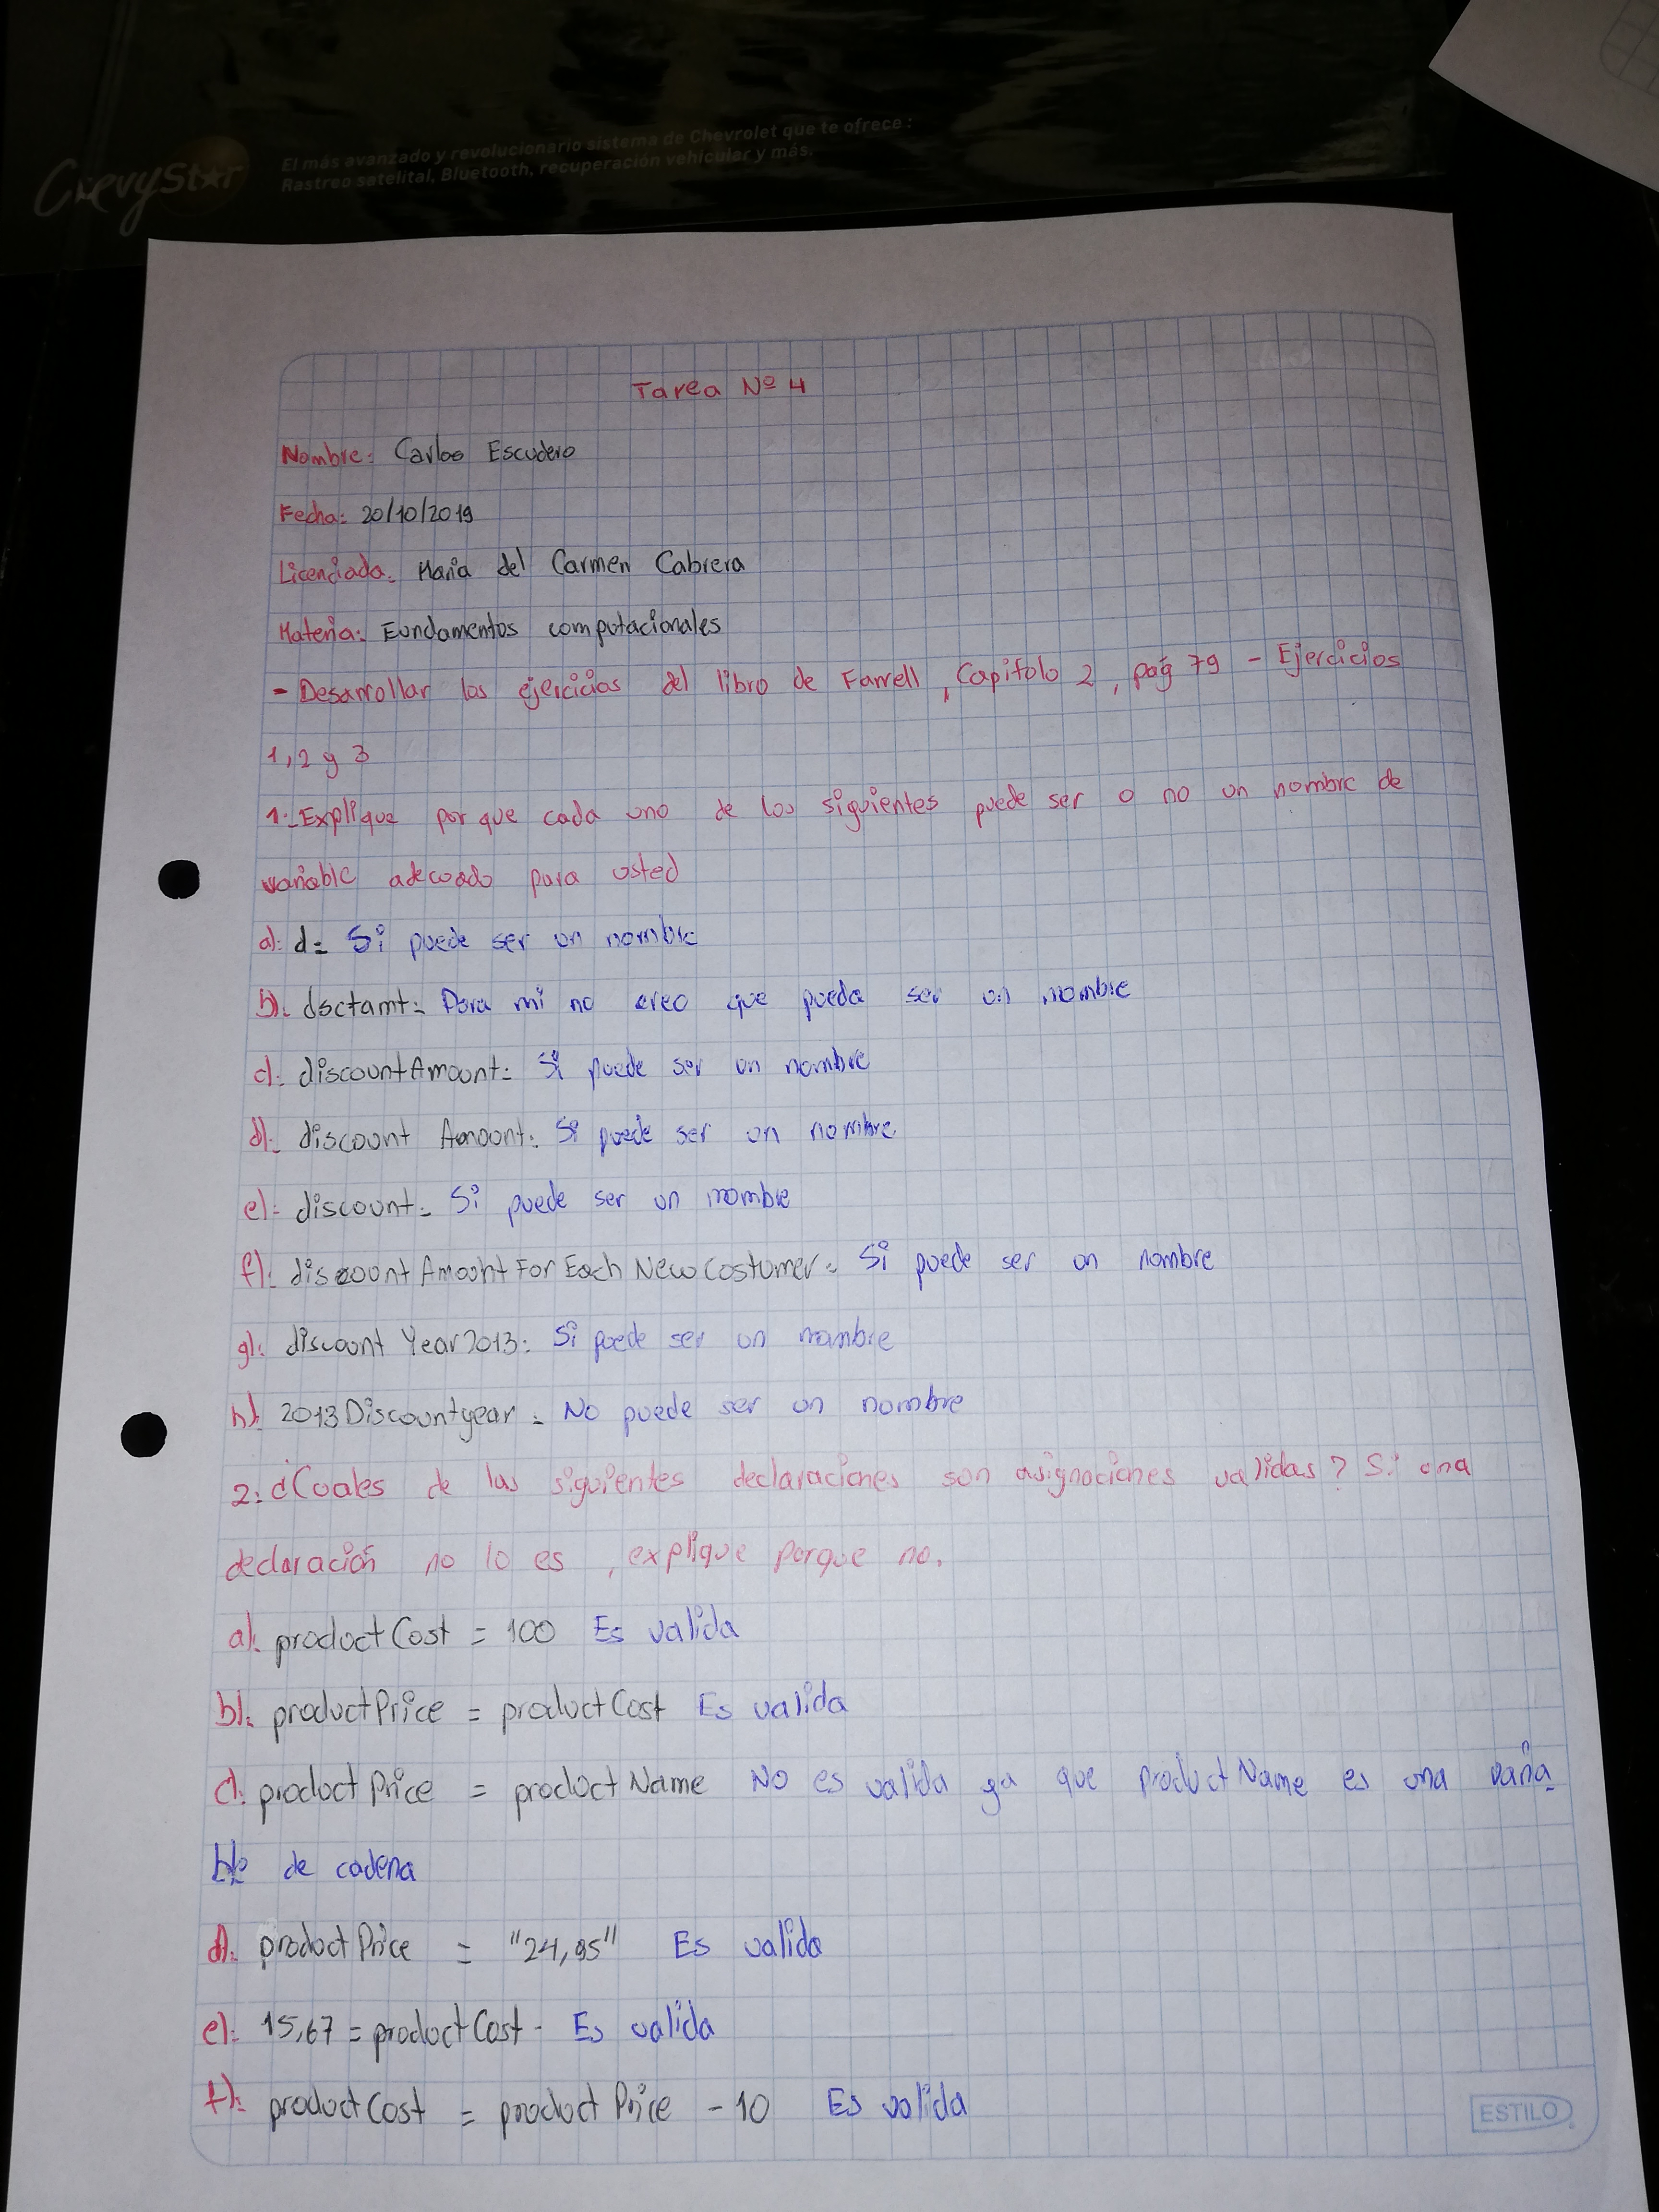 ChevyStar
El más avanzado y revolucionario sistema de Chevrolet que te ofrece :
Rastreo satelital, Bluetooth, recuperación vehicular y más.
Tarea Nº 4
Nombre: Carlos Escudero
Fecha: 20/10/2019
Licenciada: Maria del Carmen Cabrera
Materia: Fundamentos computacionales
- Desarrollar los ejercicios del libro de Farrell, Capitulo 2, pág 79 - Ejercicios
1,2 y 3
1.- Explique por que cada uno de los siguientes puede ser o no un nombre de
variable adecuado para usted
a).- d= Si puede ser un nombre
b).- dsctamt= Para mi no creo que pueda ser un nombre
c).- discountAmount= Si puede ser un nombre
d).- discount Amount= Si puede ser un nombre
e).- discount= Si puede ser un nombre
f).- discountAmountForEachNewCostumer= Si puede ser un nombre
g).- discount Year2013: Si puede ser un nombre
h).- 2013Discountyear = No puede ser un nombre
2.- ¿Cuales de las siguientes declaraciones son asignaciones validas? Si una
declaración no lo es, explique porque no.
a).- productCost = 100 Es valida
b).- productPrice = productCost Es valida
c).- productPrice = productName No es valida ya que productName es una varia-
ble de cadena
d).- productPrice = "24,95" Es valida
e).- 15,67 = productCost - Es valida
f).- productCost = productPrice - 10 Es valida
ESTILO